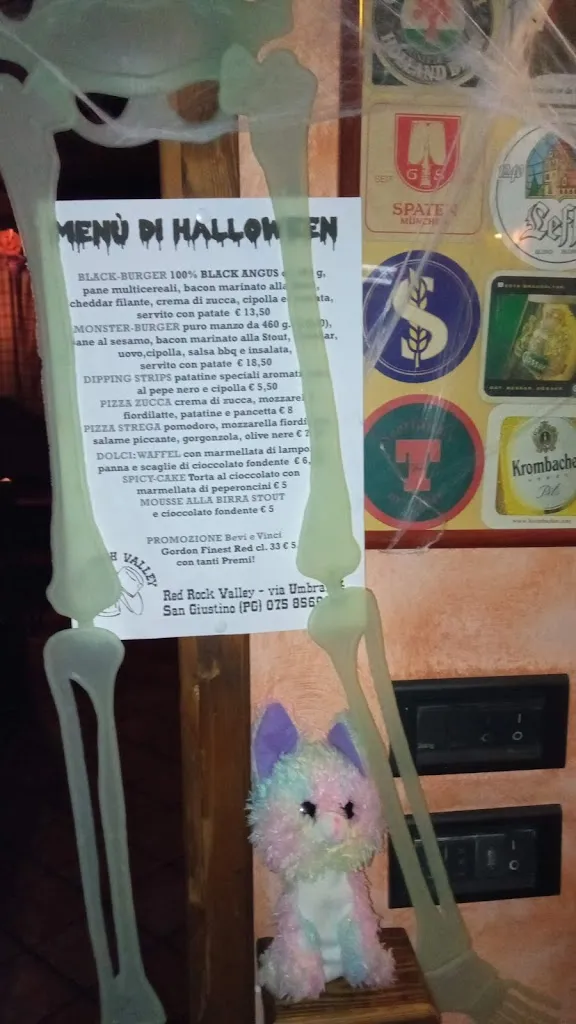 MENÙ DI HALLOWEEN
BLACK-BURGER 100% BLACK ANGUS
pane multicereali, bacon marinato
cheddar filante, crema di zucca, cipolla e
servito con patate € 13,50
MONSTER-BURGER puro manzo da 460 g.
pane al sesamo, bacon marinato alla Stout,
uovo,cipolla, salsa bbq e insalata,
servito con patate € 18,50
DIPPING STRIPS patatine speciali
al pepe nero e cipolla € 5,50
PIZZA ZUCCA crema di zucca,
fiordilatte, patatine e pancetta € 8
PIZZA STREGA pomodoro, mozzarella
salame piccante, gorgonzola, olive nere €
DOLCI: WAFFEL con marmellata di
panna e scaglie di cioccolato fondente € 6,
SPICY-CAKE Torta al cioccolato con
marmellata di peperoncini € 5
MOUSSE ALLA BIRRA STOUT
e cioccolato fondente € 5
PROMOZIONE Bevi e Vinci
Gordon Finest Red cl. 33 € 5
con tanti Premi!
VALLEY
Red Rock Valley - via
San Giustino (PG) 075
SPATEN
MÜNCHEN
G S
Leff
S
T
Krombache
Pils
www.krombacher.com